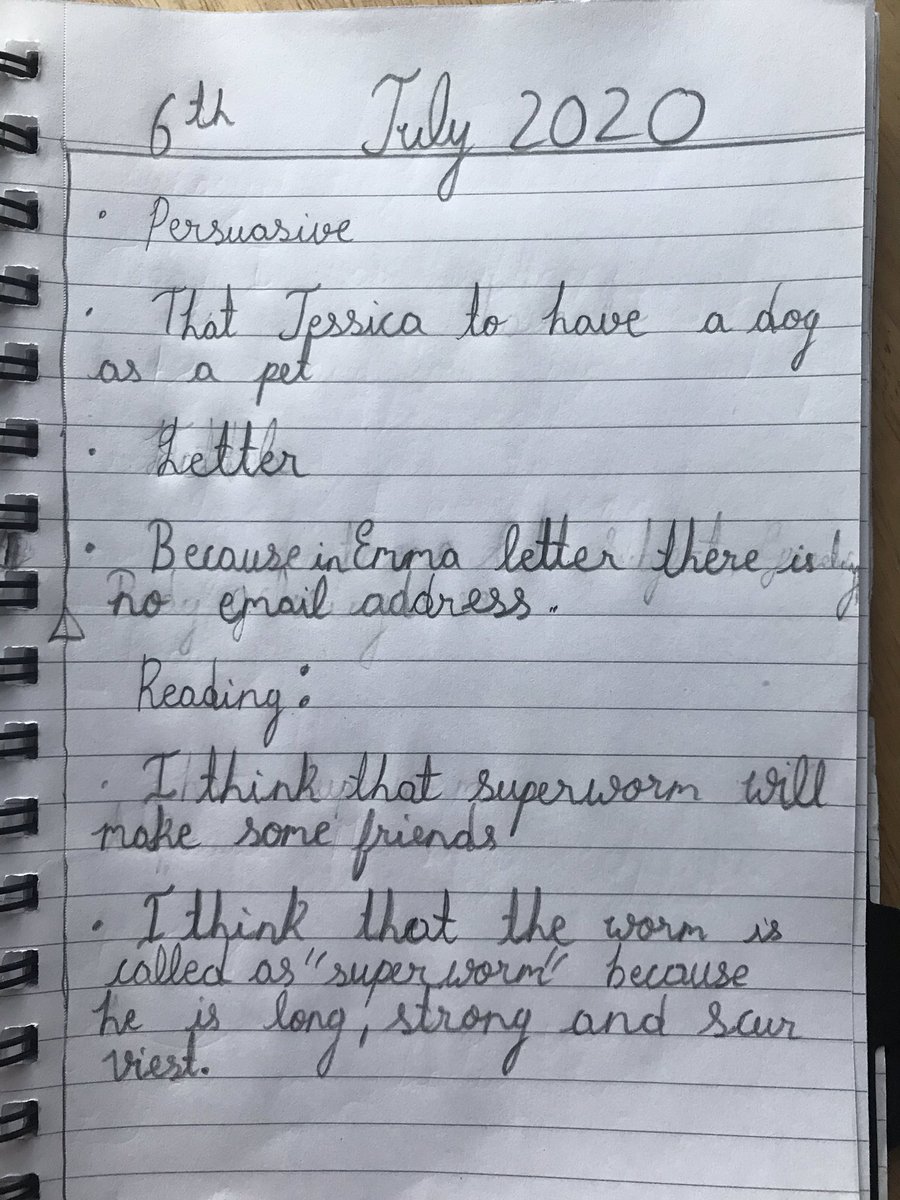 6th July 2020
· Persuasive
· That Jessica to have a dog
as a pet
· Letter
· Because in Emma letter there is
no email address.
Reading:
· I think that superworm will
make some friends
· I think that the worm is
called as "superworm" because
he is long, strong and scur
viest.